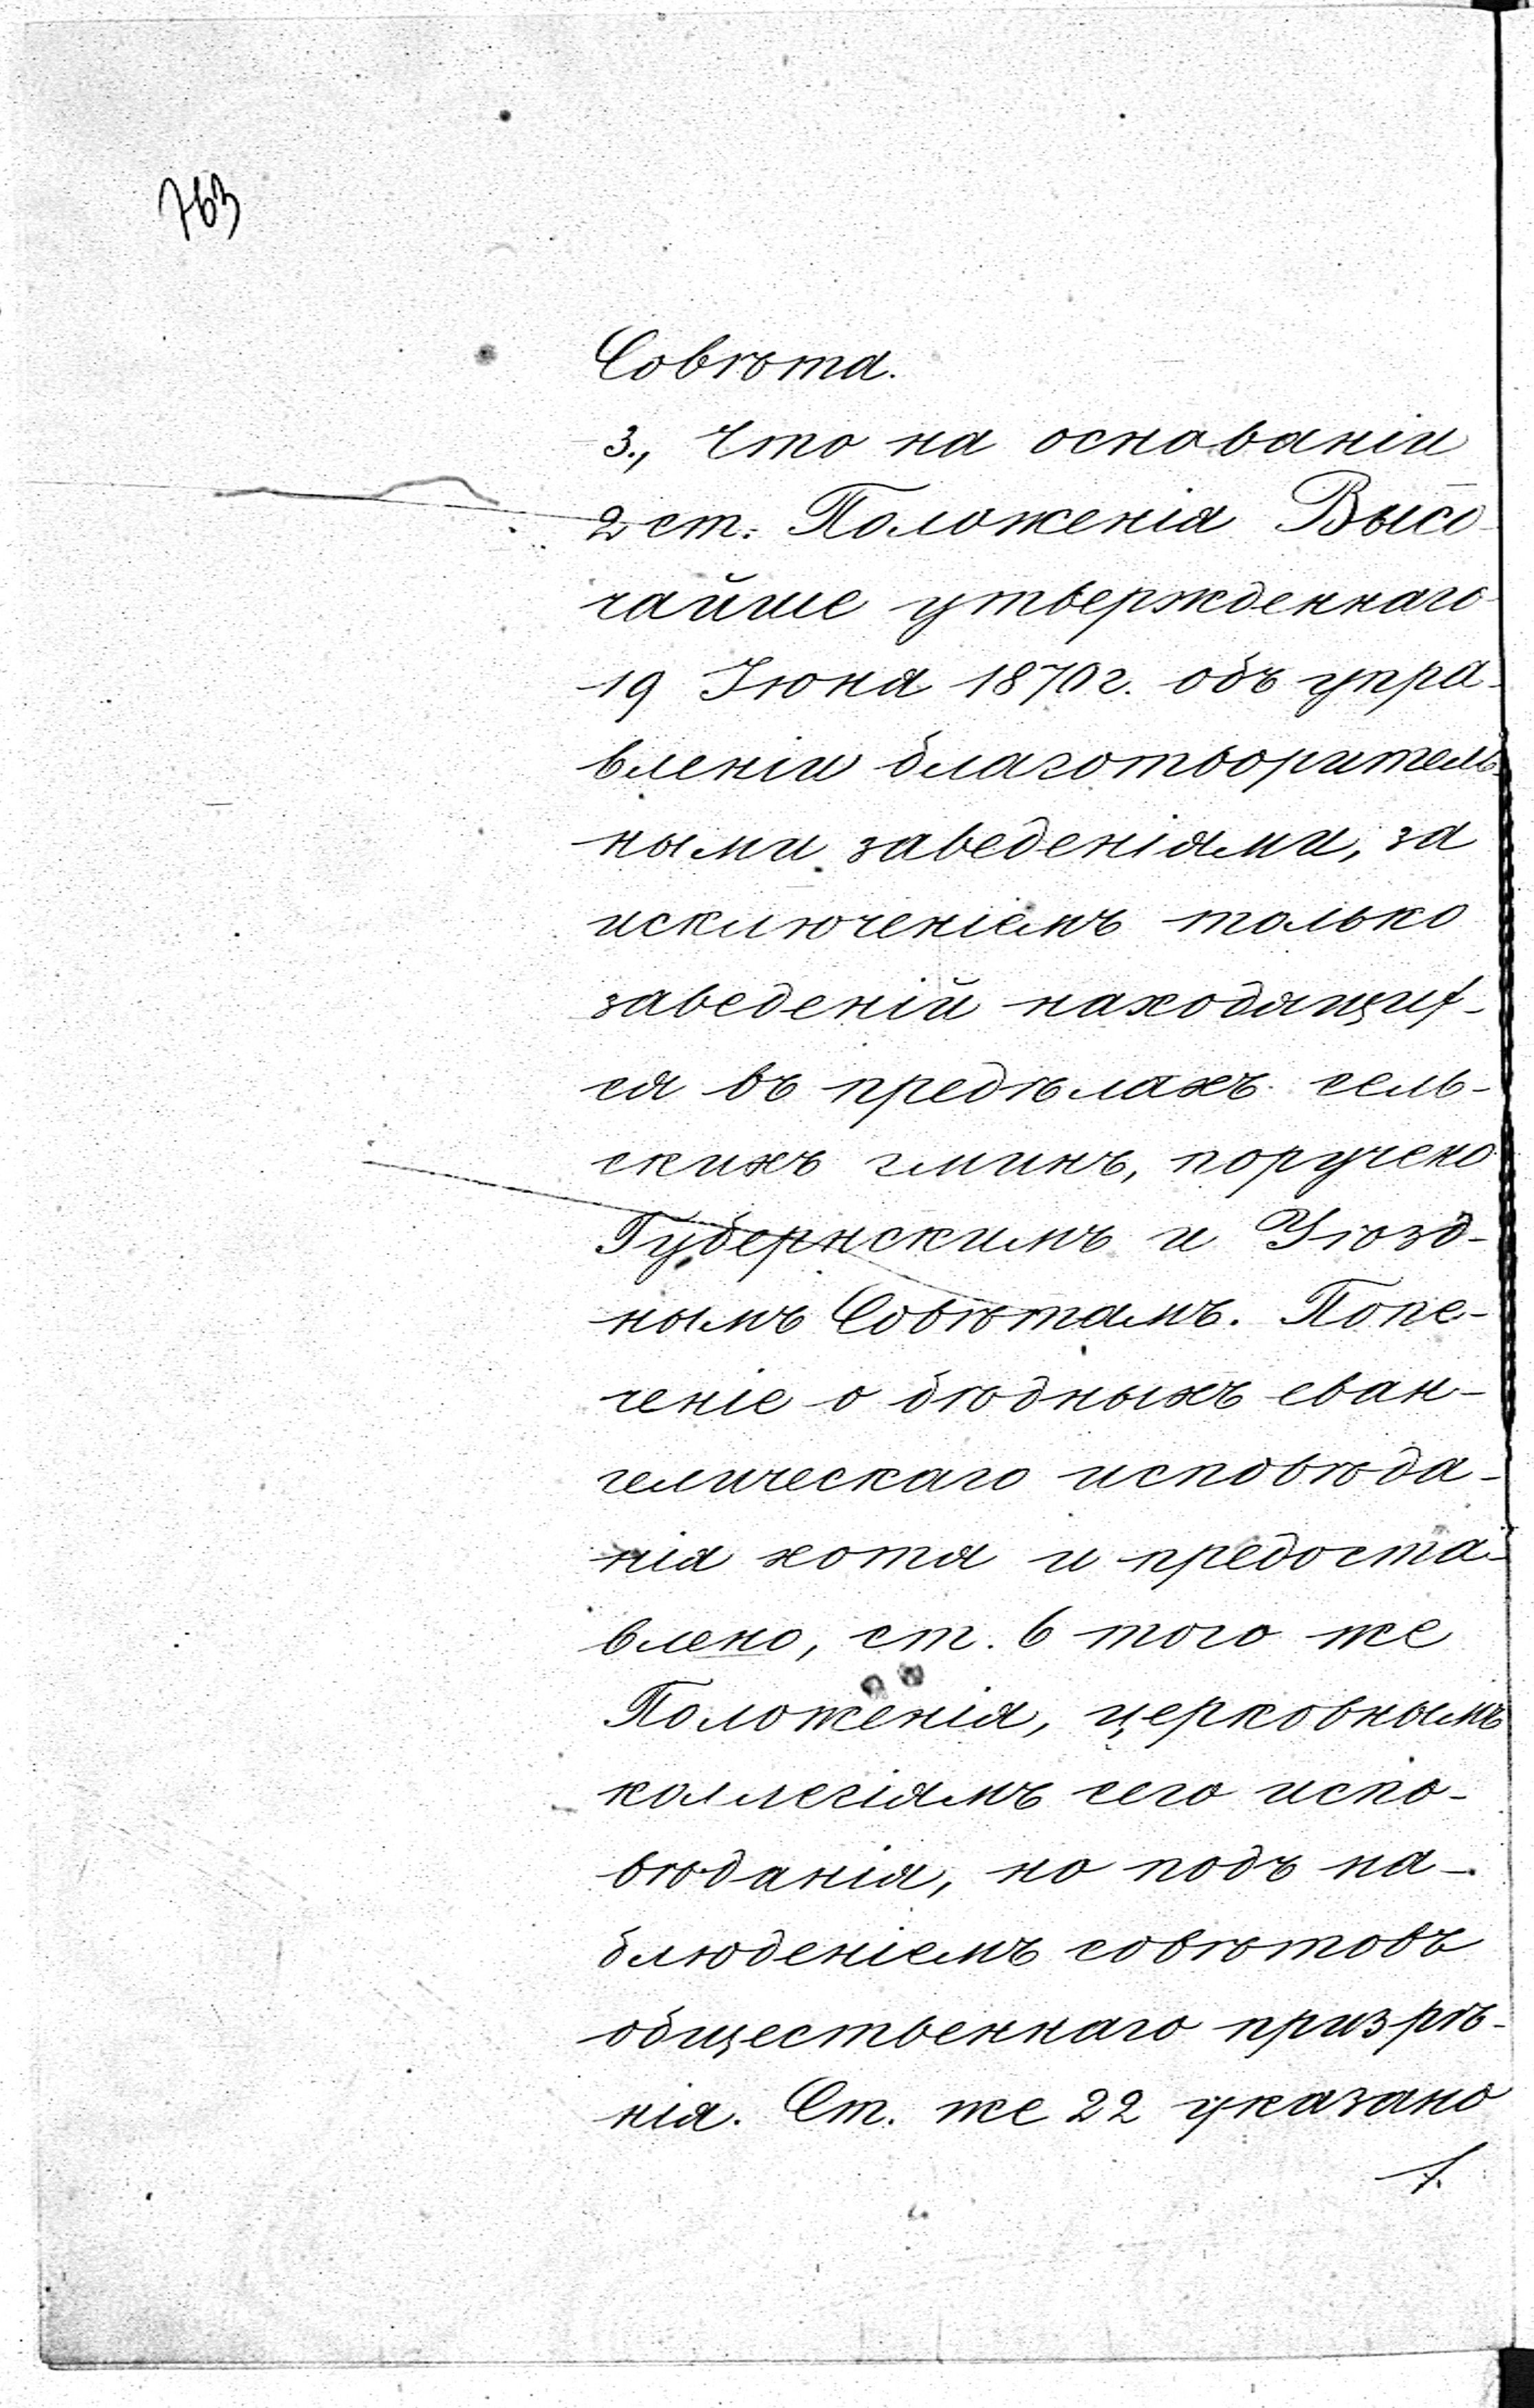 763
Совѣта.
3., Что на основаніи
2 ст. Положенія Высо-
чайше утвержденнаго
19 Іюня 1870 г. объ упра-
вленіи благотворитель-
ными заведеніями, за
исключеніемъ только
заведеній находящих-
ся въ предѣлахъ сель-
скихъ гминъ, поручено
Губернскимъ и Уѣзд-
нымъ Совѣтамъ. Попе-
ченіе о бѣдныхъ еван-
гелическаго исповѣда-
нія хотя и предоста-
влено, ст. 6 того же
Положенія, церковнымъ
коллегіямъ сего испо-
вѣданія, но подъ на-
блюденіемъ совѣтовъ
общественнаго призрѣ-
нія. Ст. же 22 указано